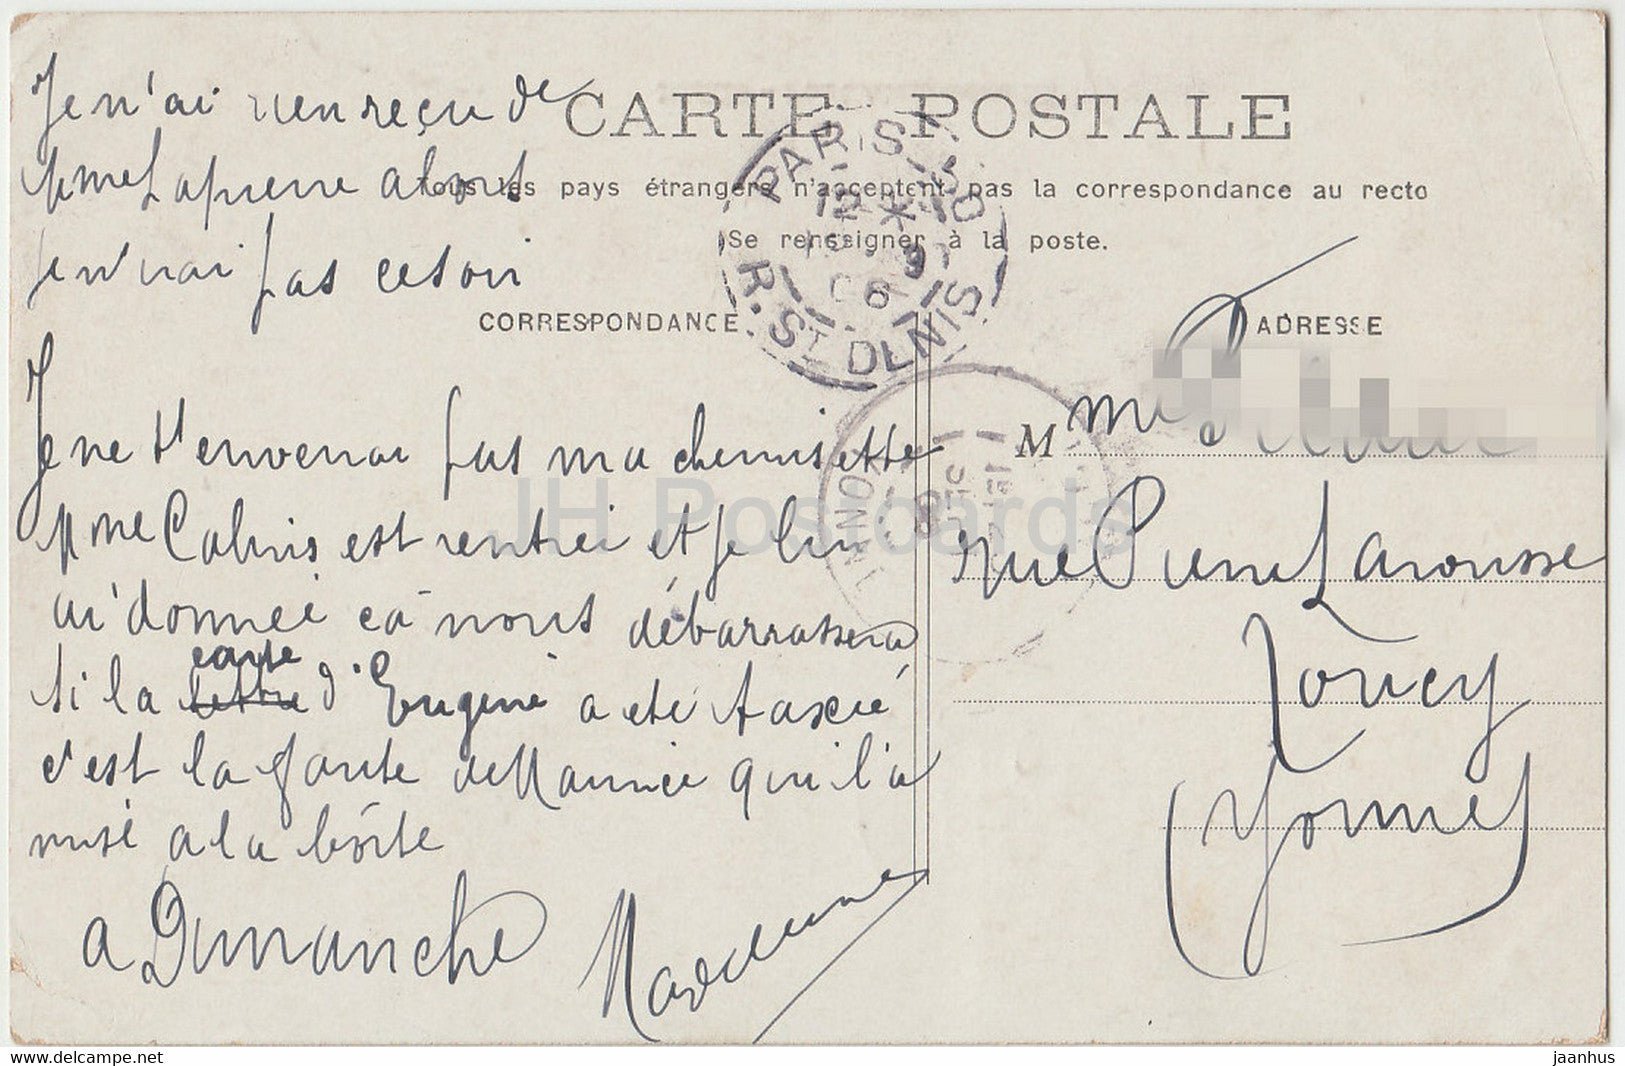 Je n'ai rien reçu de
Mme Lapierre alors
je n'irai pas ce soir
CARTE POSTALE
Tous les pays étrangers n'acceptent pas la correspondance au recto
Se renseigner à la poste.
CORRESPONDANCE
ADRESSE
PARIS
R. ST DENIS
Je ne t'enverrai pas ma chemisette
Mme Colinis est rentrei et je lui
ai donnei ça nous débarrassera
si la lettre carte d'Eugène a eté taxée
c'est la faute de Maurice qui l'a
misé a la bôite
a Dimanche
Madeleine
M me
rue Pierre Larousse
Toucy
(Yonne)
JH Postcards
www.delcampe.net
jaanhus